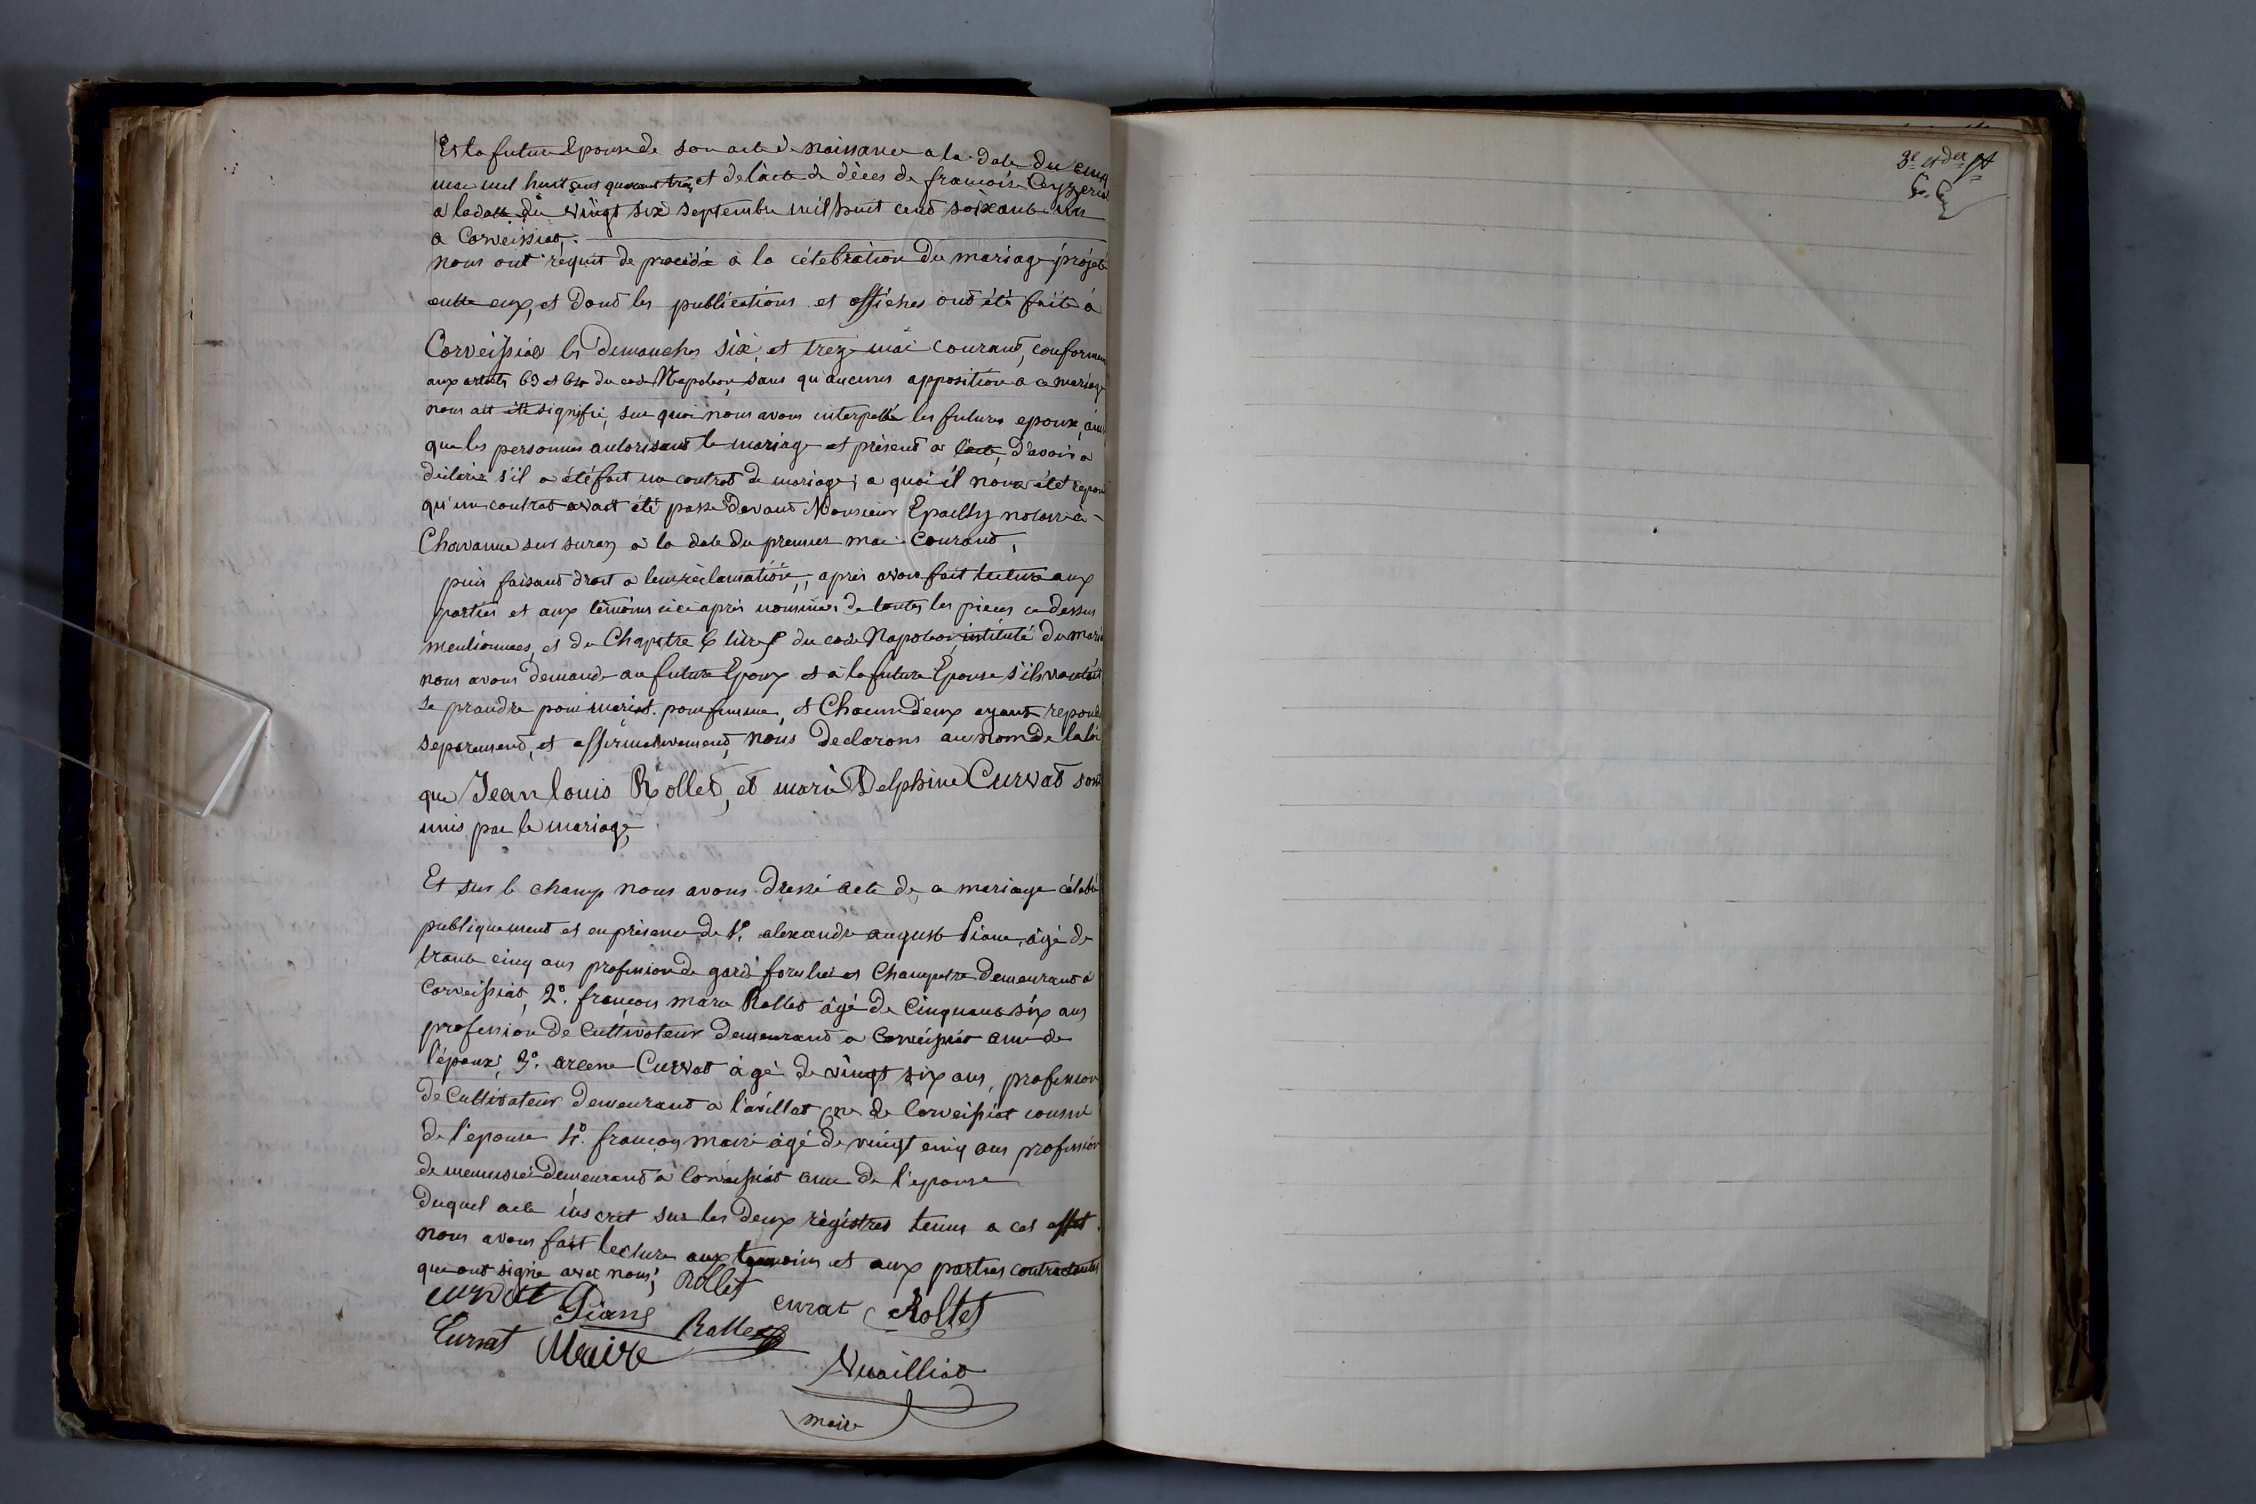 Et la future Epouse de son acte de naissance a la date du cinq
mai mil huit cent quarant trois et de l'acte de dèces de francoise Ceyzeria
a la date du vingt six septembre mil huit cent soixante un
a Corveissiat.
nous ont requit de procédé a la célébration du mariage projeté
entre eux, et dont les publications et affiches ont été faite à
Corveissiat les demanches six, et treze mai courant, conformem
aux articles 63 et 64 du code Napoleon, sans qu'aucunes apposition a ce mariage
nous ait été signifié, sur quoi nous avons interpellé les futures epoux, ainsi
que les personnes autorisant le mariage et présent a l'acte, d'avoir a
déclarer s'il a été fait un contrat de mariage; a quoi il nous étét repon
qu'un contrat avait été passé devant Monsieur Epailly notaire à
Chavanne sur suran à la date du premier mai courant,
puis faisant droit a leur réclamation, après avoir fait lecture aux
parties et aux témoins ci après nommées de toutes les pieces ce dessus
mentionnées, et du Chapitre 6 livre du code Napoleon, intitulé du maria
nous avons demandé au future Epoux et à la future Epouse s'ils voulait
se prandre pour mari et pour femme, et Chacun deux ayant repondu
separement, et affirmativement, nous declarons au nom de la loi
que Jean louis Rollet, et marie Delphine Curvat sont
unis par le mariage
Et sur le champ nous avons dressé acte de ce mariage célebré
publiquement et en présence de 1º. alexandre auguste Piane, âgé de
trante cinq ans profession de garde forestier et Champetre demeurant à
Corveissiat, 2º. françois marie Rollet âgé de cinquante six ans
profession de cultivateur demeurant a Corveissiat ami de
l'époux, 3º. arcene Curvat âgé de vingt six ans, profession
de Cultivateur demeurant a l'avillat Cne de Corveissiat cousin
de l'epouse 4º. françois maire âgé de vingt cinq ans profession
de menuisié demeurant à Corveissiat ami de l'epouse
duquel acte inscrit sur les deux règistres tenus a cet effet
nous avons fait lecture aux temoins et aux parties contractantes
qui ont signé avec nous; Rollet
curvat Piane curat Rollet
Curvat Maire Rollet
Vuailliat
maire
3e et der ft